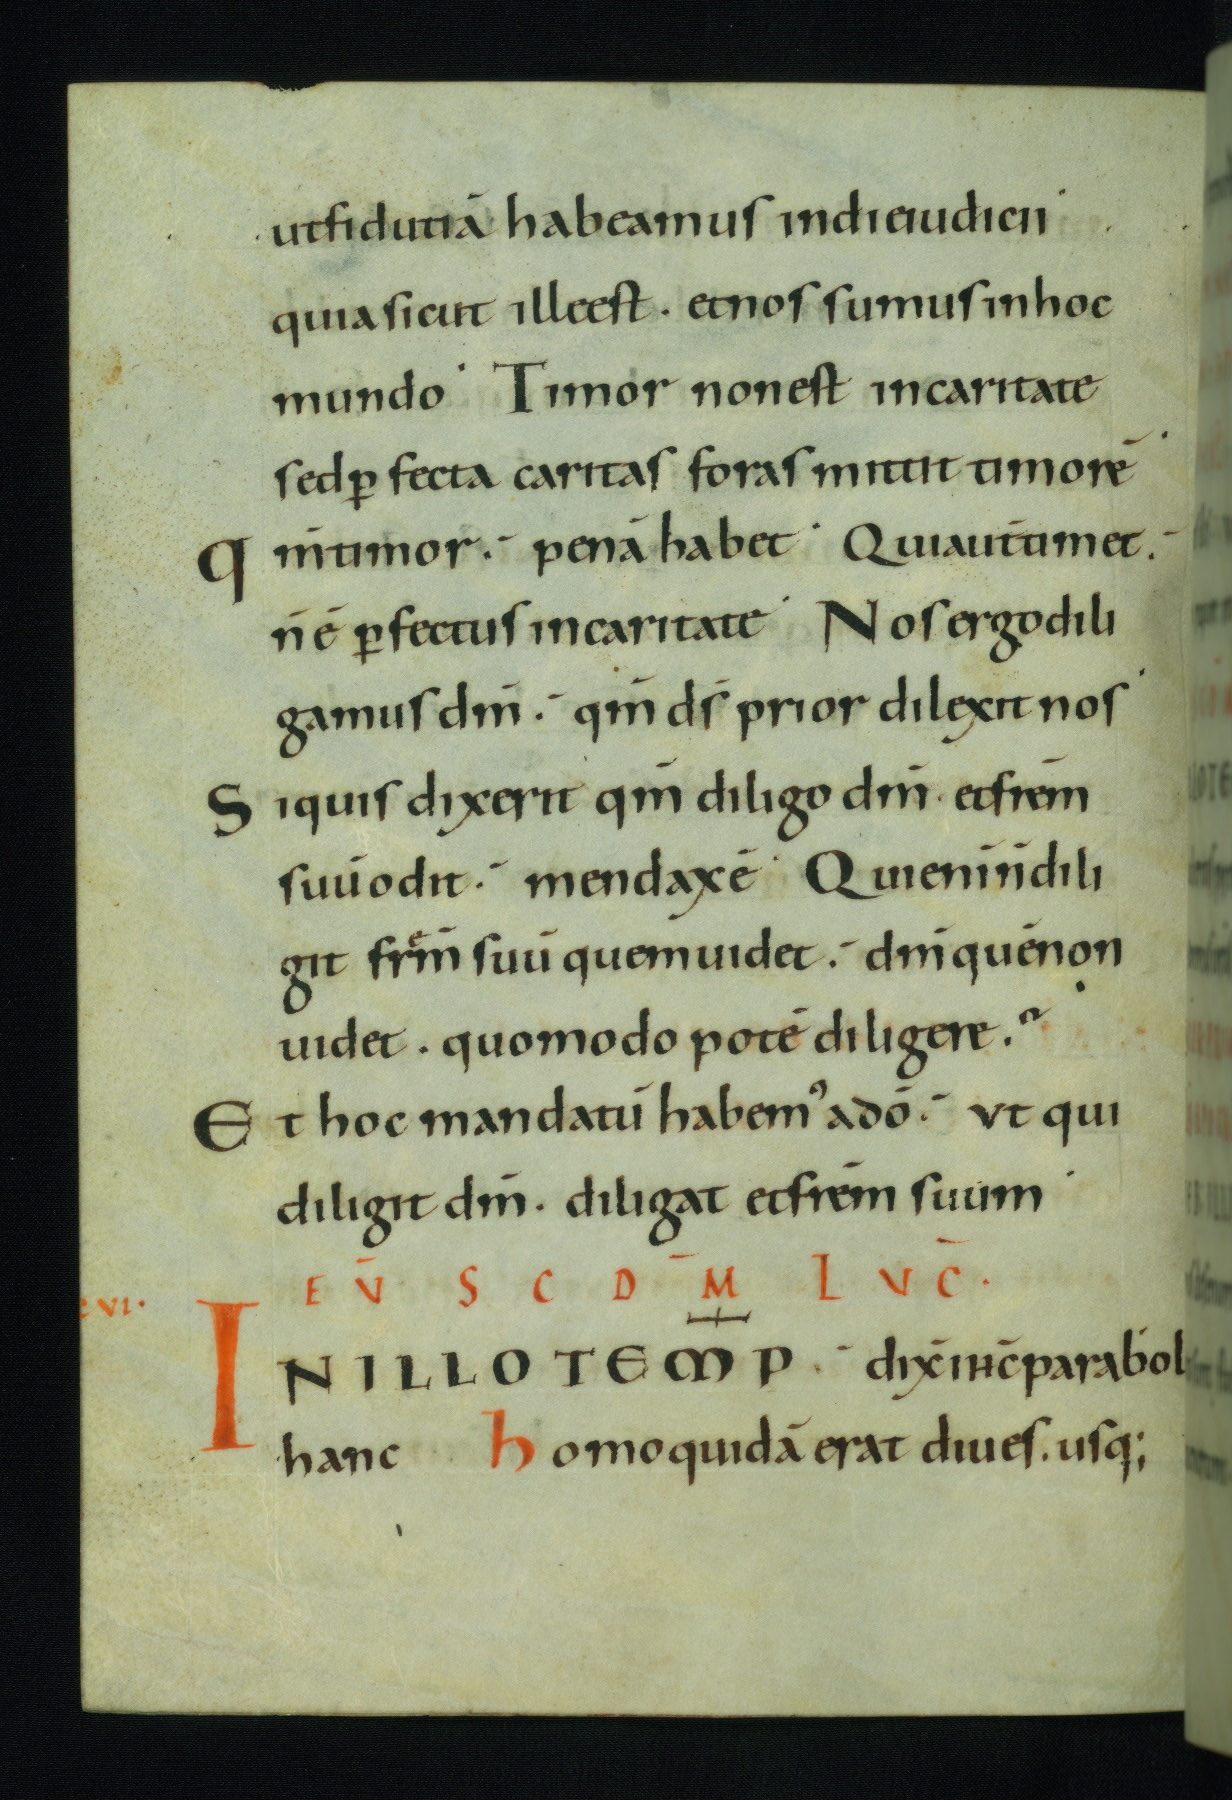 utfidutiā habeamus indieiudicii
quiasicut illeest. etnos sumusinhoc
mundo Timor nonest incaritate
sedꝑfecta caritas foras mittit timorē
qm̄timor. penā habet Quiaut̄timet.
n̄ ē ꝑfectus incaritate Nos ergodili
gamus dm̄. qm̄ ds̄ prior dilexit nos
Siquis dixerit qm̄ diligo dm̄. etfrem̄
suūodit. mendaxē Quienin̄dili
git frm̄ suū quemuidet. dm̄quēnon
uidet. quomodo potē diligere.
Et hoc mandatū habemꝰ adō. vt qui
diligit dm̄. diligat etfrem̄ suum
EV̄ SCDM̄ LVC̄.
VI.
INILLOTEMP. dix̄ ihc̄parabol
hanc homoquidā erat diues. usq;